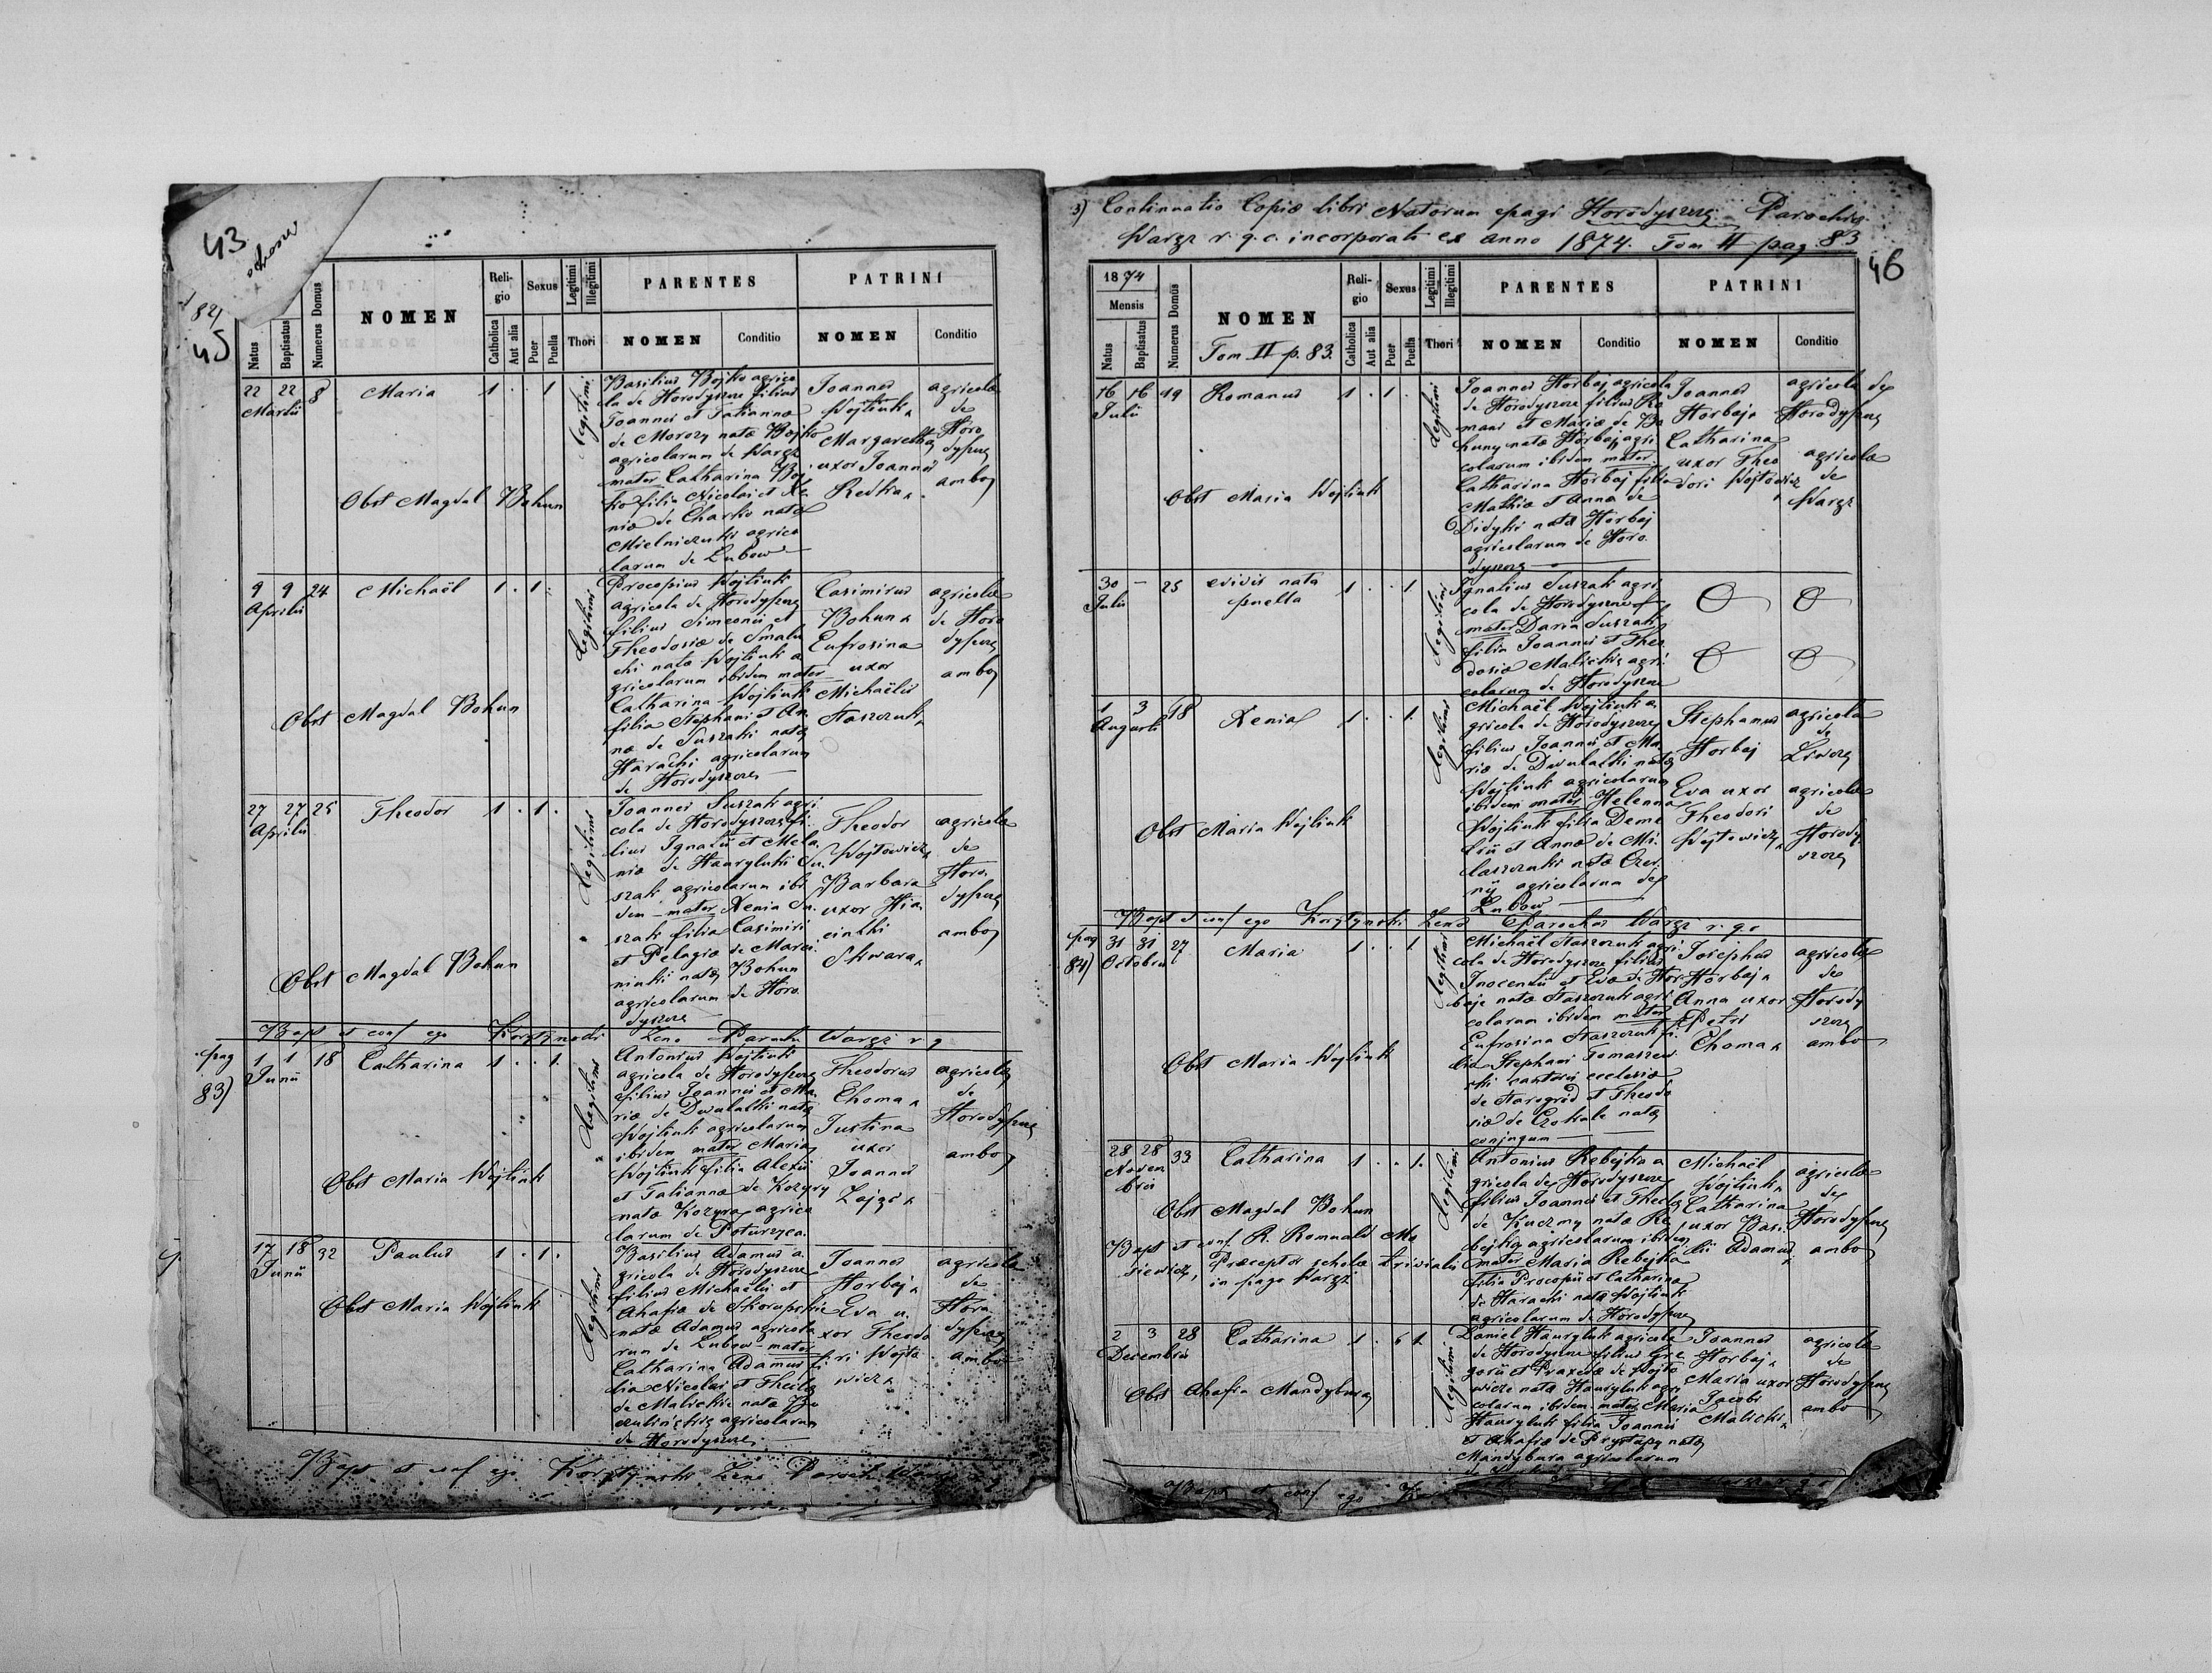 43
45
Natus
Baptisatus
Numerus Domus
NOMEN
Religio
Catholica
Aut alia
Sexus
Puer
Puella
Legitimi
Illegitimi
Thori
PARENTES
NOMEN
Conditio
PATRINI
NOMEN
Conditio
22 22 8 Maria 1 . . 1
Martii
Legitimi
Basilius Bojko agrico
la de Horodyszcze filius
Joannis et Tatianna
de Morozy nata Bojko
agricolarum de Warez
mater Catharina Boj
ko filia Nicolai et Xe
nia de Charko nata
Mielniczuk agrico
larum de Lubow
Joannes
Wojtiuk
Margaretha
uxor Joannis
Redka
agricola
de
Horo
dyszcze
ambo
Obst Magdal Bohun
9 9 24 Michaël 1 . 1 .
Aprilis
Legitimi
Procopius Wojtiuk
agricola de Horodyszcze
filius Simeonis et
Theodosia de
nata Wojtiuk a
gricolarum ibidem mater
Catharina Wojtiuk
filia Stephani et An
na de Suszak nata
Harachi agricolarum
de Horodyszcze
Casimirus
Bohun
Eufrosina
uxor
Michaëlis
Staszczuk
agricola
de Horo
dyszcze
ambo
Obst Magdal Bohun
27 27 25 Theodor 1 . 1 .
Aprilis
Legitimi
Joannes Suszak agri
cola de Horodyszcze fi
lius Ignatii et Mela
nia de Hawryluk Su
szak agricolarum ibi
dem mater Xenia Su
szak filia Casimiri
et Pelagia de Marci
niuk nata Bohun
agricolarum de Horo
dyszcze
Theodor
Wojtowicz
Barbara
uxor Hia
cinthi
Skwara
agricola
de
Horo
dyszcze
ambo
Obst Magdal Bohun
Bapt et conf ego Korytynski Zeno Paroch Warez r g
pag
83)
1 1 18 Catharina 1 . . 1.
Junii
Legitimi
Antonius Wojtiuk
agricola de Horodyszcze
filius Joannis et Ma
ria de Duvalki nata
Wojtiuk agricolarum
ibidem mater Maria
Wojtiuk filia Alexii
et Tatianna de Kozyry
nata Kozyra agrico
larum de Poturzyca
Theodorus
Choma
Justina
uxor
Joannis
Zajza
agricola
de
Horodyszcze
ambo
Obst Maria Wojtiuk
17 18 32 Paulus 1 . 1 .
Junii
Legitimi
Basilius Adamus a
gricola de Horodyszcze
filius Michaëlis et
Ahafia de Skorupskie
nata Adamus agricola
rum de Lubow mater
Catharina Adamus fi
lia Nicolai et Thecla
de Malickie nata
agricolarum
de Horodyszcze
Joannes
Horbaj
Eva u
xor Theodo
ri Wojto
wicz
agricola
de
Horo
dyszcze
ambo
Obst Maria Wojtiuk
Bapt et conf ego Korytynski Zeno Paroch Warez
3) Continuatio Copiæ libri Natorum pagi Horodyszcze Parochiæ
Warez r. g. c. incorporati ex anno 1874. Tom II pag. 83
46
1874
Mensis
Natus
Baptisatus
Numerus Domus
NOMEN
Tom II p. 83.
Religio
Catholica
Aut alia
Sexus
Puer
Puella
Legitimi
Illegitimi
Thori
PARENTES
NOMEN
Conditio
PATRINI
NOMEN
Conditio
16 16 19 Romanus 1 . 1 .
Julii
Legitimi
Joannes Horbaj agricola
de Horodyszcze filius Ro
mani et Maria de Bo
huny nata Horbaj agri
colarum ibidem mater
Catharina Horbaj filia
Mathia et Anna de
Didyki nata Horbaj
agricolarum de Horo
dyszcze
Joannes
Horbaj
Catharina
uxor Theo
dori Wojtowicz
agricola de
Horodyszcze
agricola
de
Warez
Obst Maria Wojtiuk
30 - 25 vivis nata
puella 1 . . 1
Julii
Legitimi
Ignatius Suszak agri
cola de Horodyszcze
mater Daria Suszak
filia Joannis et Theo
dosia Malickie agri
colarum de Horodyszcze
1 3 18 Xenia 1 . . 1.
Augusti
Legitimi
Michaël Wojtiuk a
gricola de Horodyszcze
filius Joannis et Ma
ria de Duvalki nata
Wojtiuk agricolarum
ibidem mater Helena
Wojtiuk filia Deme
trii et Anna de Mi
laszczuki nata Czer
nij agricolarum de
Lubow
Stephanus
Horbaj
Eva uxor
Theodori
Wojtowicz
agricola
de
Liwcze
agricola
de
Horody
szcze
Obst Maria Wojtiuk
Bapt et conf ego Korytynski Zeno Parochus Warez r. g. c
pag
84)
31 31 27 Maria 1 . . 1.
Octobris
Legitimi
Michaël Staszczuk agri
cola de Horodyszcze filius
Inocentii et Eva de Hor
baje nata Staszczuk agri
colarum ibidem mater
Eufrosina Staszczuk fi
lia Stephani Tomaszew
ski cantoris ecclesia
de Starogrod et Theodo
sia de Czokale nata
conjugum
Josephus
Horbaj
Anna uxor
Petri
Choma
agricola
de
Horody
szcze
ambo
Obst Maria Wojtiuk
28 28 33 Catharina 1 . . 1.
Novem
bris
Legitimi
Antonius Rebejka a
gricola de Horodyszcze
filius Joannis et Thecla
de Kuczmy nata Re
bejka agricolarum ibidem
mater Maria Rebejka
filia Procopii et Catharina
de Harachi nata Wojtiuk
agricolarum de Horodyszcze
Michaël
Wojtiuk
Catharina
uxor Basi
lii Adamus
agricola
de
Horodyszcze
ambo
Obst Magdal Bohun
Bapt et conf R. Romuald Mo
siewicz, Præceptor scholæ trivialis
in pago Warez
2 3 28 Catharina 1 . 1.
Decembris
Legitimi
Daniel Hawryluk agricola
de Horodyszcze filius Gre
gorii et Praxeda de Wojto
wicze nata Hawryluk agri
colarum ibidem mater Maria
Hawryluk filia Joannis
et Ahafia de Prystapy nata
Mandybura agricolarum
Joannes
Horbaj
Maria uxor
Jacobi
Malicki
agricola
de
Horodyszcze
ambo
Obst Ahafia Mandybura
Bapt et conf ego